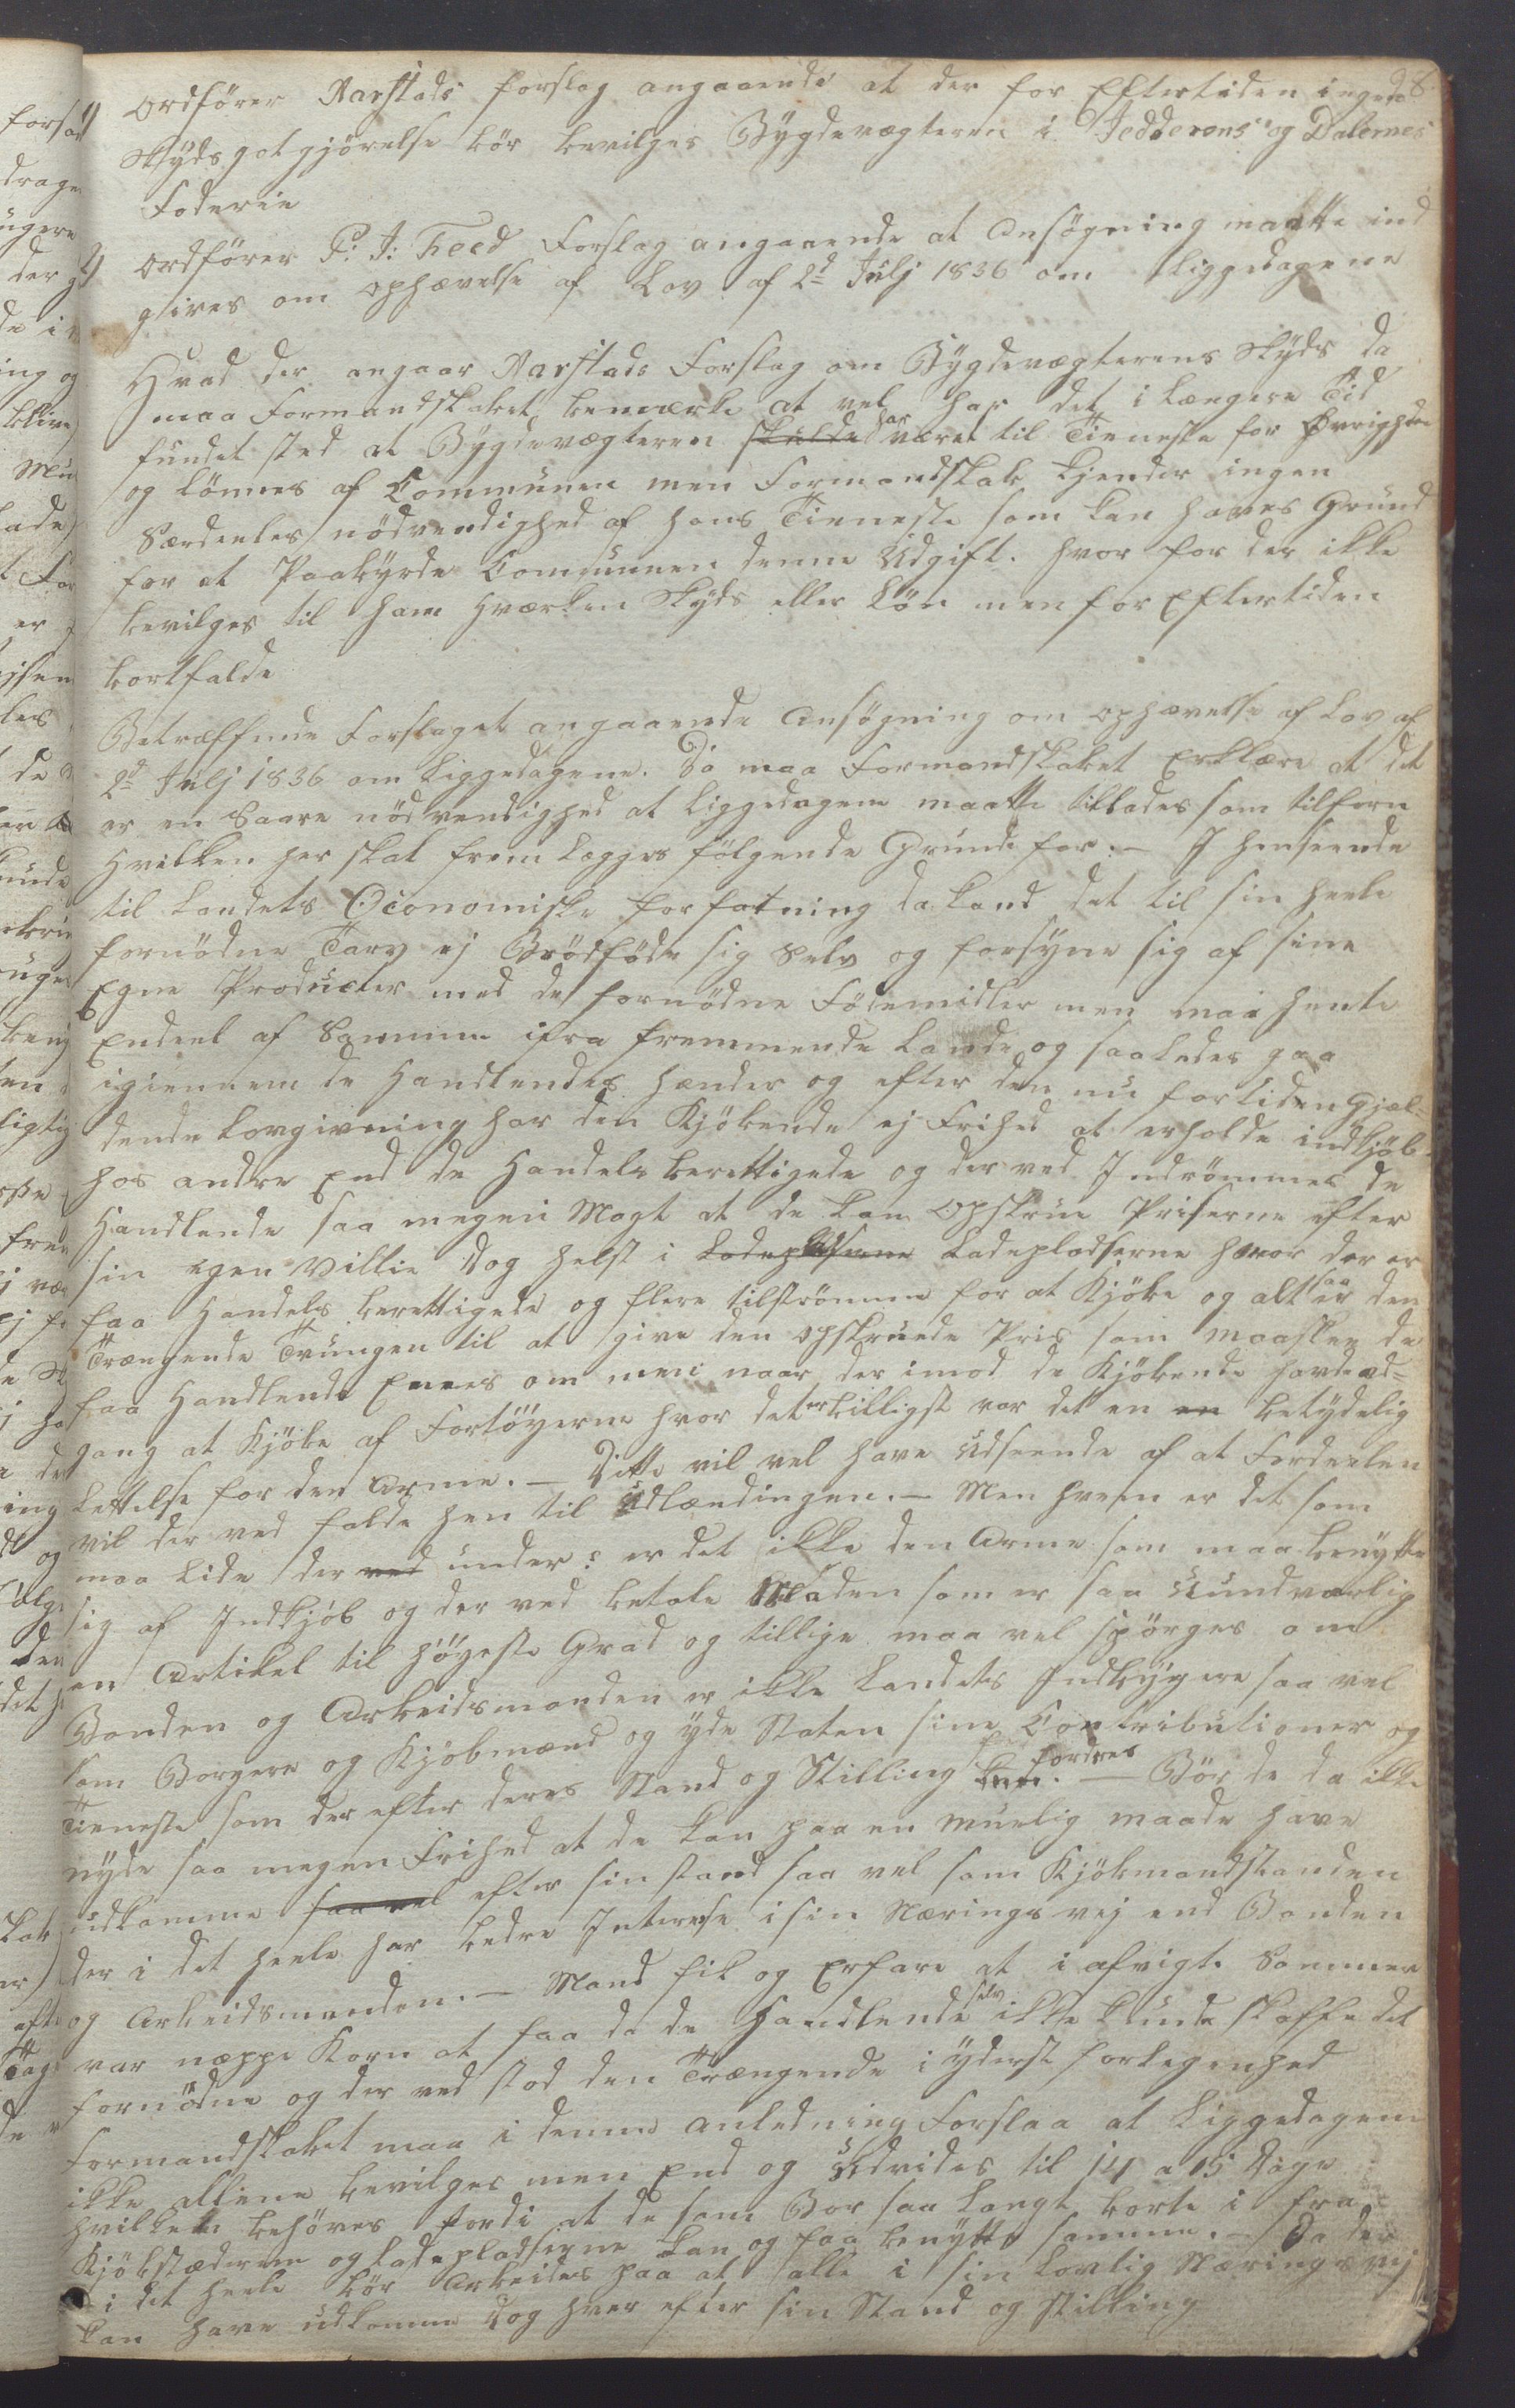 28.
1) Ordfører Aarstads forslag angaaende at der for Eftertiden ingen
Skyds gotgjörelse bör bevilges Bygdevægteren i Jedderens og Dalernes
Foderie
2) Ordförer P. J. Feed Forslag angaaende at Ansögning maatte ind
gives om ophævelse af Lov af 2d Julj 1836 om Liggedagene
Hvad der angaar Aarstads Forslag om Bygdevægterens Skyds da
maa Formandskabet bemærke at vel har det i længere Tid
fundet sted at Bygdevægteren skulde har været til Tieneste for Øvrigheden
og lönnes af Communen men Formandskab kjender ingen
Særdeeles nödvendighed af hans Tieneste som kan haves Grund
for at Paabyrde Communen denne Udgift. hvor for der ikke
bevilges til ham hverken Skyds eller Lön men for Eftertiden
bortfalde
Betræffende Forslaget angaaende Ansögning om ophævelse af Lov af
2d Julj 1836 om Liggedagene. Da maa Formandskabet Erklære at det
er en Saare nödvendighed at Liggedagene maatte tillades som tilforn
Hvilken her skal frem lægges fölgende Grunde for. – I henseende
til Landets Öconomiske forfatning da Land det til sin heele
fornödne Tarv ej Brödföde sig Selv og forsyne sig af sine
Egne Producter med de fornödne Födemidler men maa hente
Endeel af Samme ifra fremmende Lande og saaledes gaa
igiennem de Handlendes hænder og efter den nu fortiden Gjæl-
dende Lovgivning har den Kjöbende ej Frihed at erholde indkjöb
hos andre End de Handels berettigede og derved Indrömmes de
Handlende saa megen Magt at de kan Opskrue Priserne efter
sin egen Villie Dog helst i Ladepladserne Ladepladserne hvor der er
faa Handels berettigede og flere tilströmme for at Kjöbe og altsaa er den
Trængende Tvungen til at give den opskruede Pris som maaskee de
faa Handlende Enes om men naar der imod de Kjöbende havde ad-
gang at Kjöbe af Fartöyerne hvor det er billigst var det en en betydelig
Lettelse for den Arme. – Dette vil vel have Udseende af at Fordeelen
vil der ved falde hen til Udlændingen. – Men hvem er det som
maa lide der ved under? er det ikke den Arme som maa benytte
sig af Indkjöb og der ved betale Maden som er saa Uundværlig
en Artikel til höyeste Grad og tillige maa vel spörges om
Bonden og Arbeidsmanden er ikke Landets Indbyggere saa vel
som Borgere og Kjöbmænd og yde Staten sine Contributioner og
Tieneste som der efter deres Stand og Stilling fordres – Bör de da ikke
nyde saa megen Frihed at de kan paa en muelig maade have
udkomme saa vel efter sin stand saa vel som Kjöbmandstanden
der i det heele har bedre Interesse i sin Nærings vej end Bonden
og Arbeidsmanden. – Mand fik og Erfare at i afvigte Sommer
var neppe Korn at faa da de Handlende selv ikke kunde skaffe det
fornödne og der ved stod den Trængende i yderste forlegenhed
Formandskabet maa i denne anledning Forslaa at Liggedagene
ikke allene bevilges men End og Udvides til 14 a 15 Dage
hvilket behöves fordi at de som Boer saa langt borte i fra
Kjöbstæderne og Ladepladserne kan og faa benytte samme. – Da der
i det heele bör Arbeides paa at alle i sin Lovlig Nærings vej
kan have udkomme Dog hver efter sin Stand og Stilling